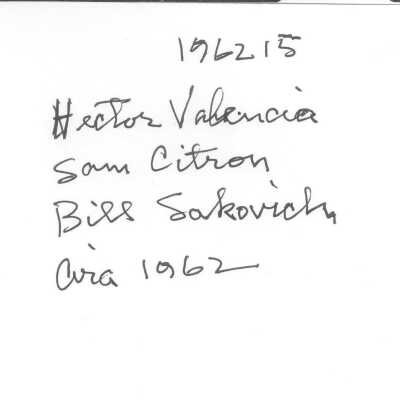 196215
Hector Valencia
Sam Citron
Bill Sakovich
Cira 1962